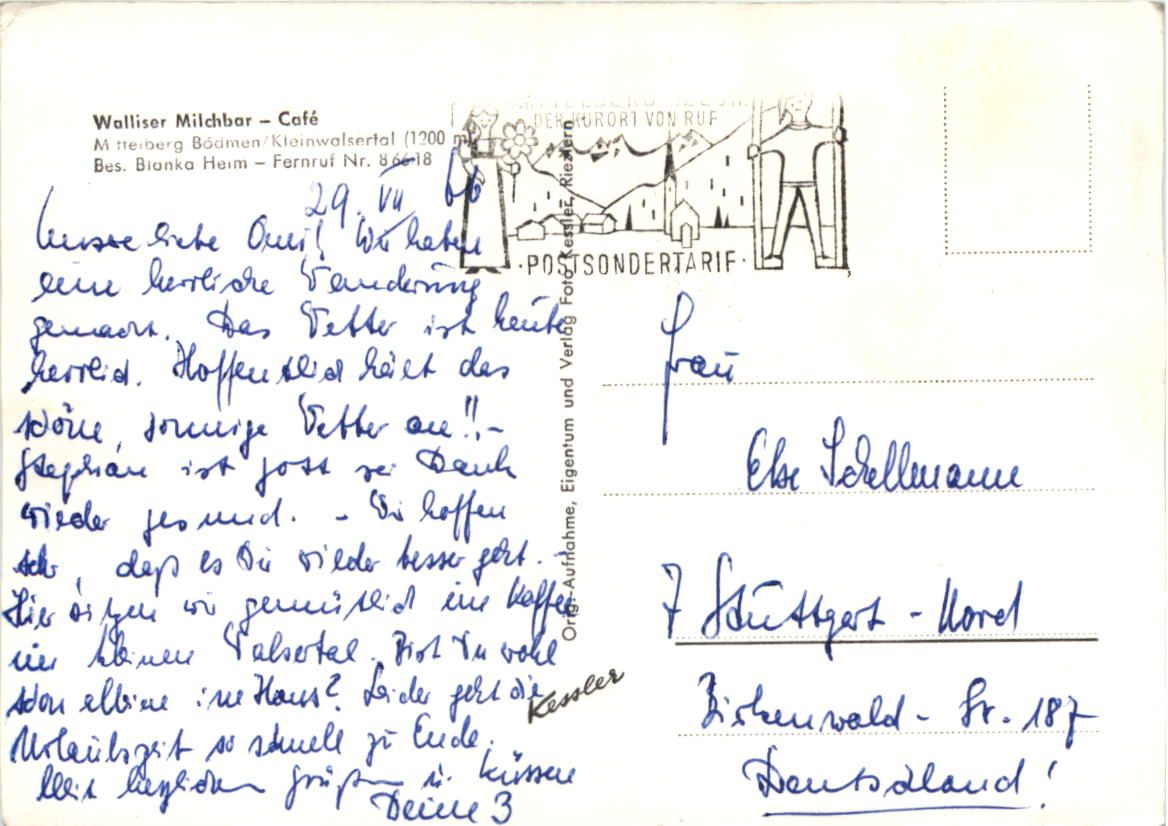 Walliser Milchbar – Café
Mittelberg Bödmen/Kleinwalsertal (1200 m)
Bes. Bianka Heim – Fernruf Nr. 866 18
DER KURORT VON RUF
·POSTSONDERTARIF·
29. VII 66
Unsere liebe Omi! Wir haben
eine herrliche Wanderung
gemacht. Das Wetter ist heute
herrlich. Hoffentlich hält das
schöne, sonnige Wetter an!! –
Stephan ist gott sei Dank
wieder gesund. – Wir hoffen
sehr, daß es Dir wieder besser geht. –
Hier sitzen wir gemütlich im Kaffee
im kleinen Walsertal. Bist Du wohl
schon alleine im Haus? Leider geht die
Urlaubszeit so schnell zu Ende.
Mit herzlichen Grüßen u. Küssen
Deine 3
Orig.-Aufnahme, Eigentum und Verlag Foto Kessler, Riezlern
Kessler
Frau
Else Schellmann
7 Stuttgart - Nord
Birkenwald - Str. 187
Deutschland!